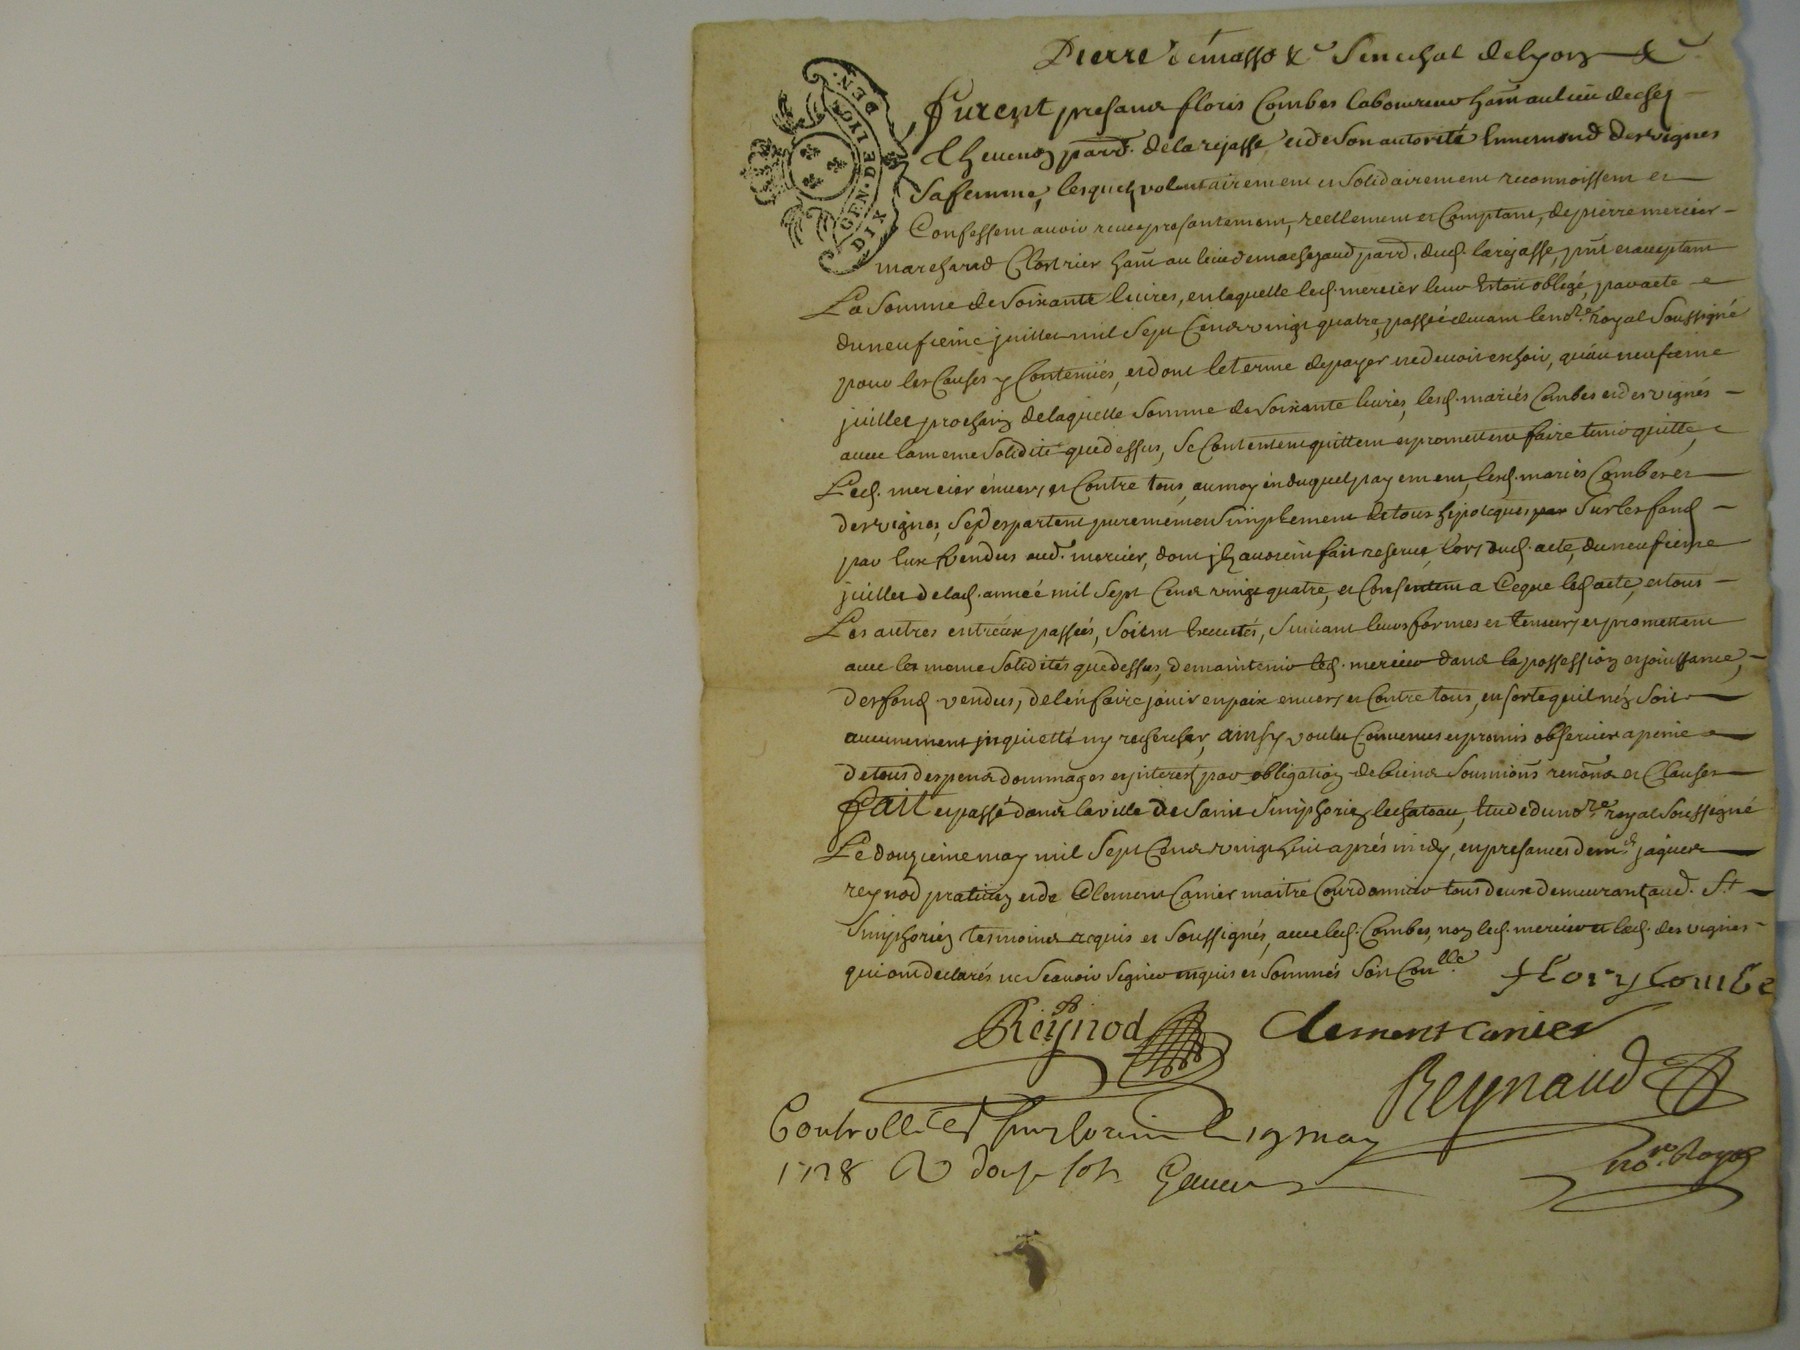 Pierre demasso &c Senechal delyon &c
GEN. DE LYON. DEN.
DIX
furent presans floris Combes laboureur ha͞nt aulieu dechez
Thevenon parr̃. delarejasse et de Son autorité Ennemond desvignes
Safemme, lesquelz volontairement et Solidairement reconnoissent et
Confessent avoir receu presantement, reellement et Comptant, depierre mercier
marchand Cloutrier ha͞nt au lieu de machezaud parr̃. dud. larejasse, p͞nt et acceptant
La Somme de Soixante livres, en laquelle led. mercier leur Estoit obligé, par acte
du neufieme juillet mil Sept Cens vingt quatre, passée devant le no.re royal Soussigné
pour les Causes y Contenües, et dont le terme de payer ne devoit eschoir, qu'au neufieme
juillet prochain de laquelle Somme de Soixante livres, lesd. mariés Combes et desvignes
avec la meme Solidité que dessus, Se Contentent quittent et promettent faire tenir quitte
Led. mercier envers et Contre tous, au moyen duquel payement, lesd. mariés Combes et
desvignes, Se despartent purement et Simplement de tous hipoteques par Sur les fond
par Eux Vendus aud. mercier, dont ilz avoient fait reserve lors dud. acte, du neufieme
juillet de lad. année mil Sept Cens vingt quatre, et Consentent a Ceque led. acte, et tous
Les autres entr'eux passés, Soient Executés, Suivant leurs formes et teneurs, et promettent
avec les meme Solidités que dessus, de maintenir led. mercier dans la possession et jouissance,
des fond vendus, de l'en faire jouir en paix envers, et Contre tous, en sorte qu'il n'en Soit
aucunement inquietté ny rechercher, ainsy voulu Convenus et promis observer a peine
de tous despens dommages et interest par obligation de biens Soumions renons et Clauses
fait et passé dans la ville de Saint Simphorien le chateau, Etude du no.re royal Soussigné
Le douzieme may mil Sept Cens vingt huit après midy, en presances de m.e jaques
reynod praticien et de Clement Canier maitre Courdonnier tous deux demeurant aud. S.t
Simphorien tesmoins requis et Soussignés, avec led. Combes, non led. mercier et lad. desvignes
qui ont declarés ne Scavoir Signer enquis et Sommés Soit Con.lle
flory Combe
Reynod
Clement canier
Reynaud
no.re Royal
Controllé a St Simphorien le 19 may
1728 R douze sols